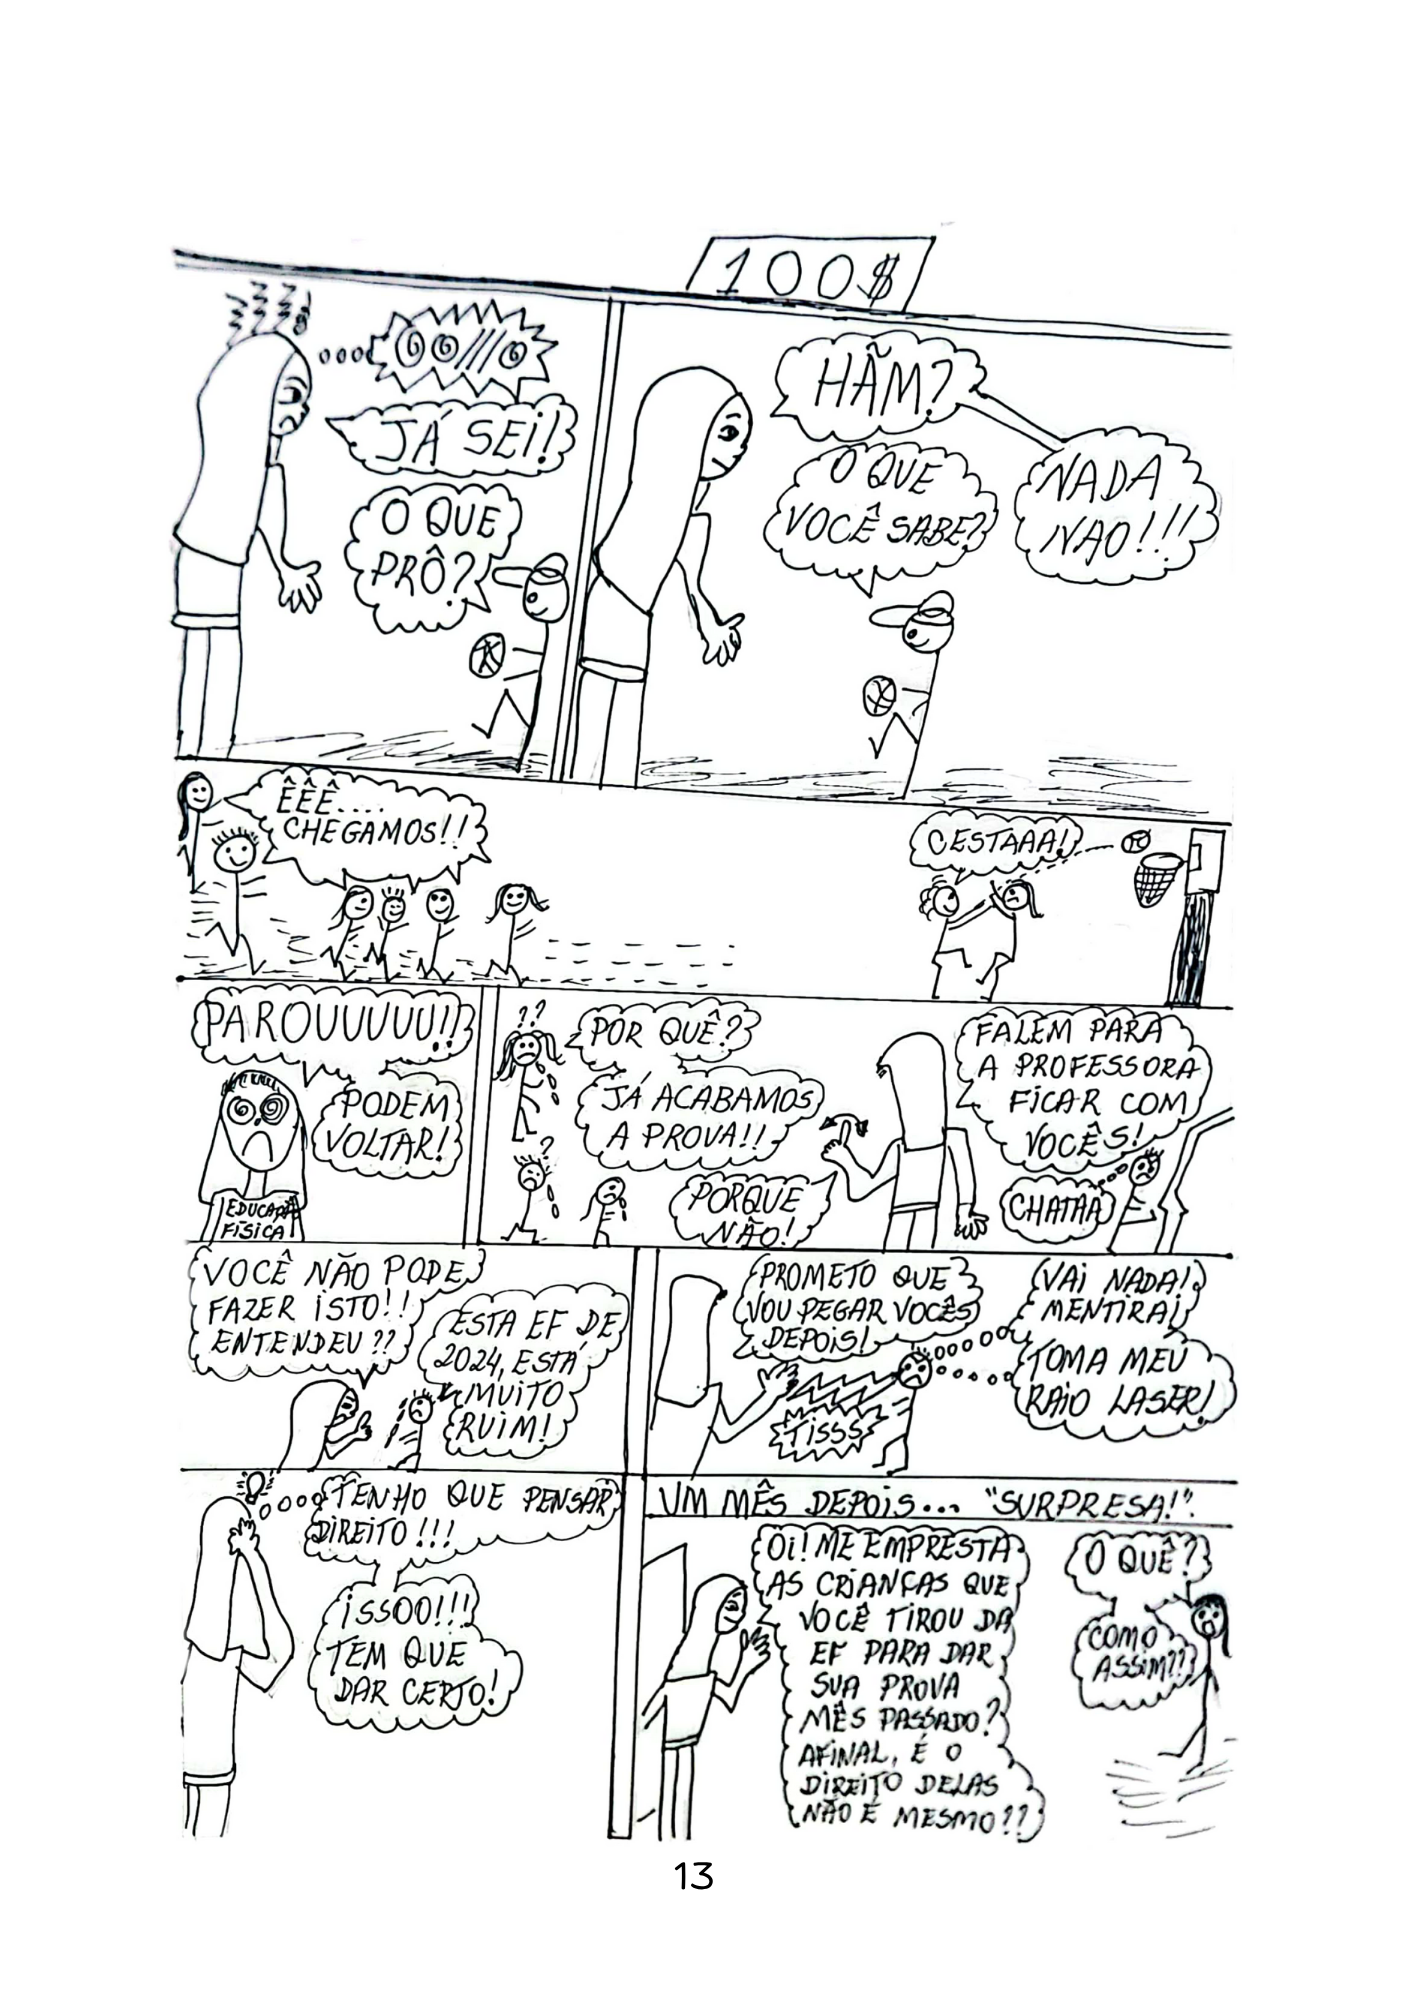 100$
JÁ SEI!
O QUE
PRÔ?
HÃM?
NADA
NAO!!!
O QUE
VOCÊ SABE?
ÊÊÊ....
CHEGAMOS!!
CESTAAA!
PAROUUUUU!!
PODEM
VOLTAR!
EDUCAÇÃ
FÍSICA
??
POR QUÊ?
JÁ ACABAMOS
A PROVA!!
?
PORQUE
NÃO!
FALEM PARA
A PROFESSORA
FICAR COM
VOCÊS!
CHATAA
VOCÊ NÃO PODE
FAZER ISTO!!
ENTENDEU??
ESTA EF DE
2024, ESTÁ
MUITO
RUIM!
PROMETO QUE
VOU PEGAR VOCÊS
DEPOIS!
VAI NADA!
MENTIRA!
TOMA MEU
RAIO LASER!
TISSS
TENHO QUE PENSAR
DIREITO!!!
ISSOO!!!
TEM QUE
DAR CERTO!
UM MÊS DEPOIS... "SURPRESA!".
OI! ME EMPRESTA
AS CRIANÇAS QUE
VOCÊ TIROU DA
EF PARA DAR
SUA PROVA
MÊS PASSADO?
AFINAL, É O
DIREITO DELAS
NÃO É MESMO??
O QUÊ?
COMO
ASSIM??
13